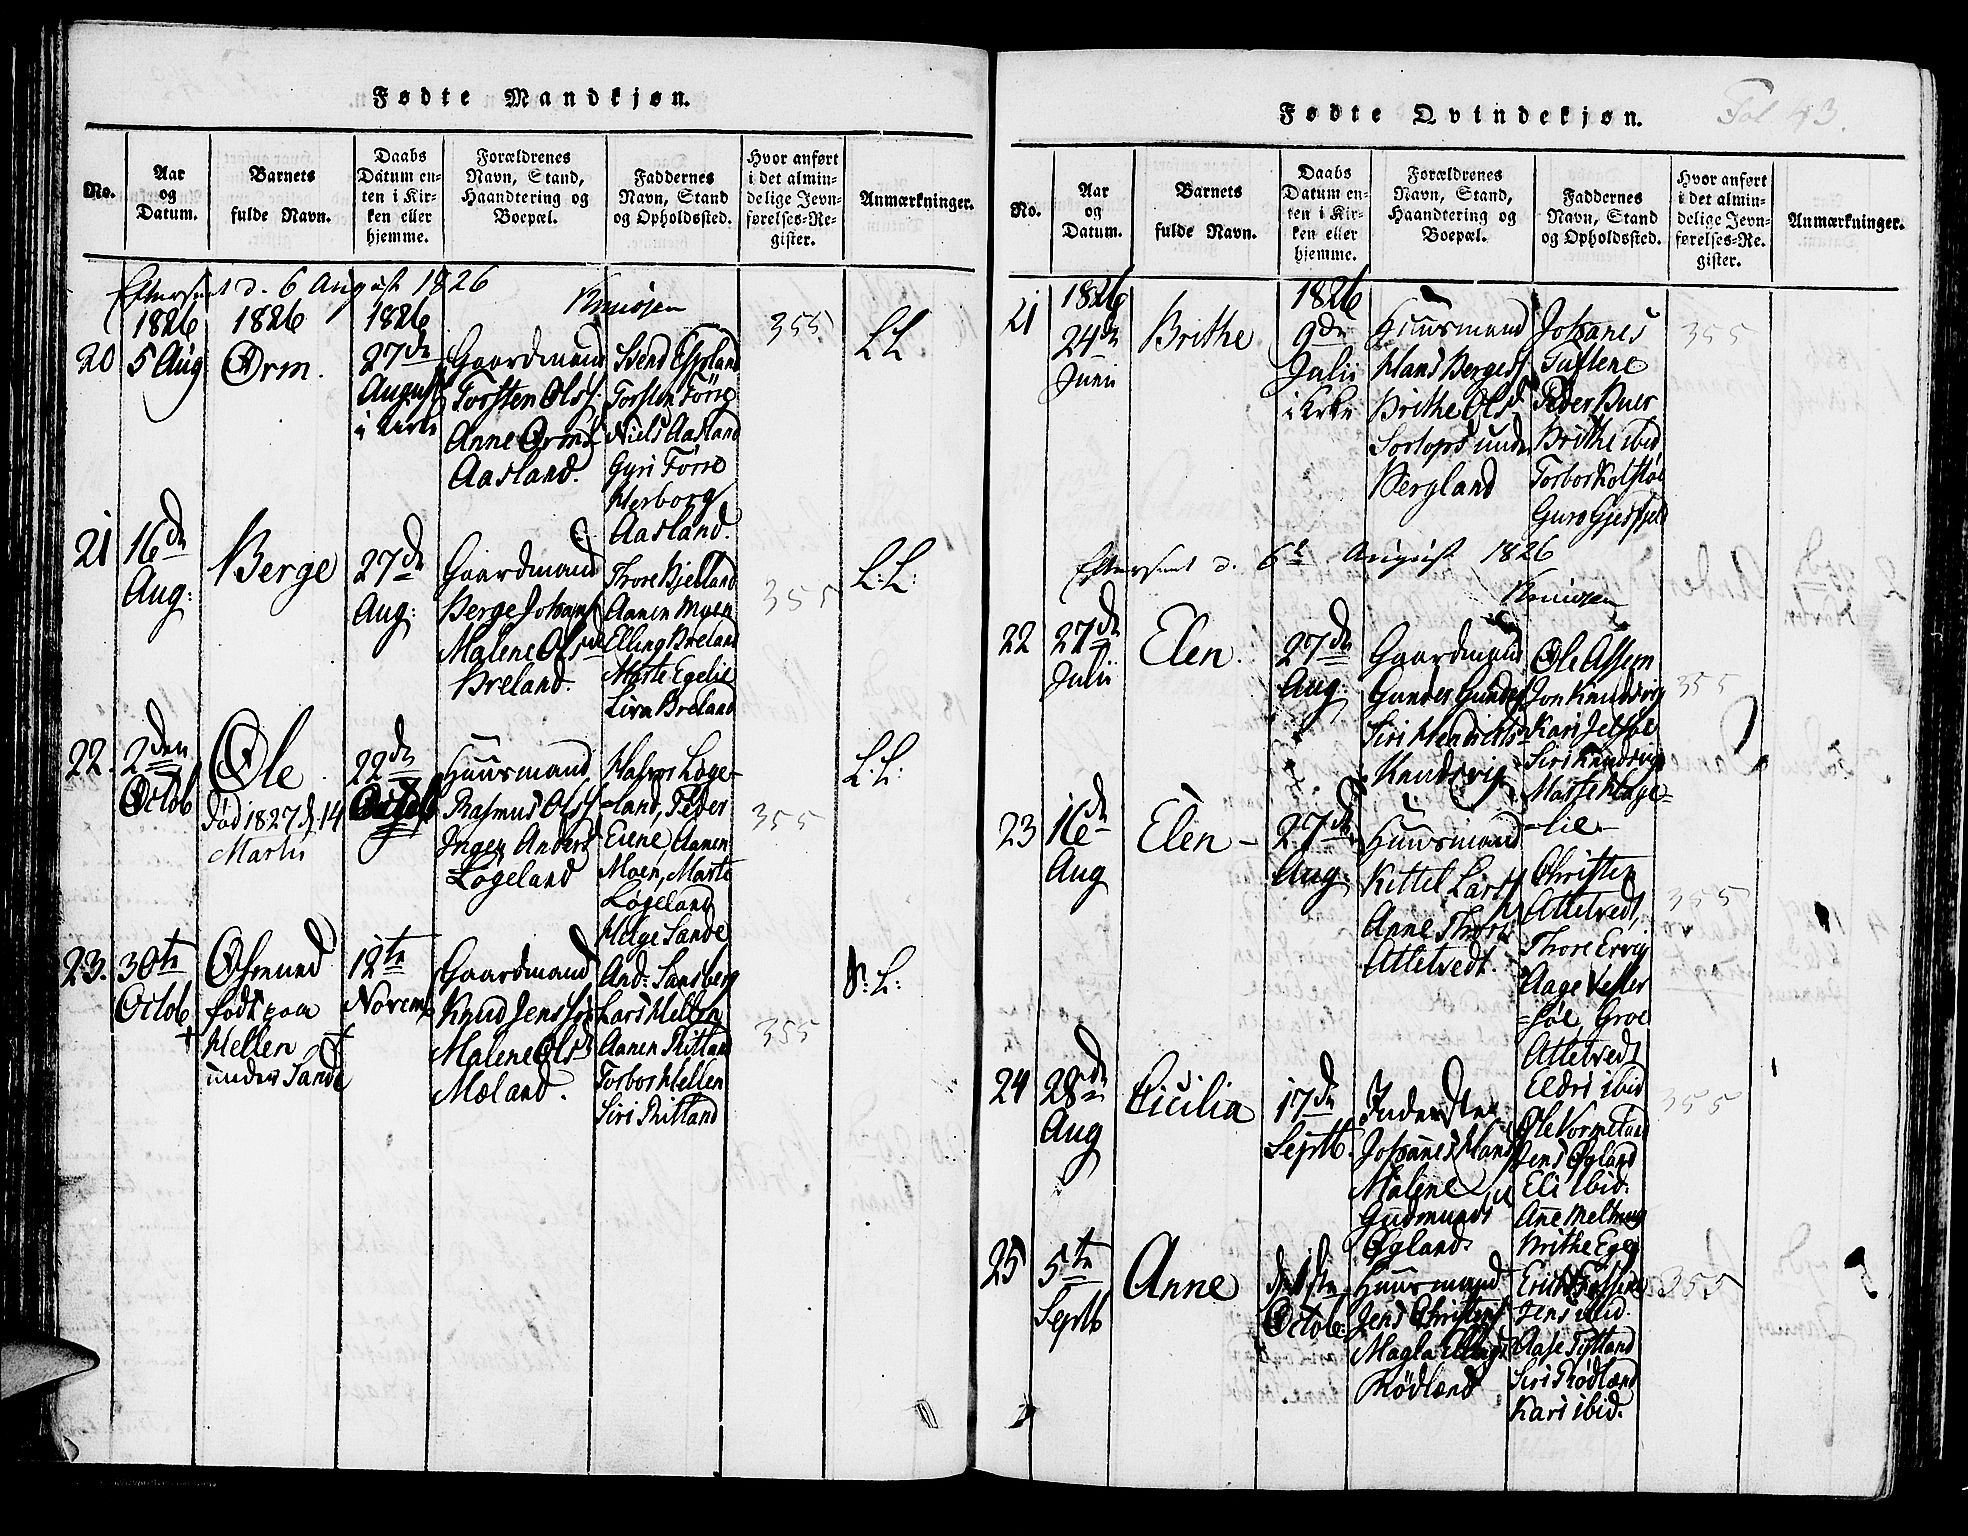 Fødte Mandkjøn.
No.
Aar
og
Datum.
Barnets
fulde Navn.
Daabs
Datum en-
ten i Kir-
ken eller
hjemme.
Forældrenes
Navn, Stand,
Haandtering og
Boepæl.
Faddernes
Navn, Stand
og Opholdssted.
Hvor anført
i det almin-
delige Jevn-
førelses-Re-
gister.
Anmærkninger.
Efterseet d. 6 August 1826
1826
20
5 Aug
1826
Orm.
1826
27de
August
i Kirke
Gaardmand
Torsten Ols
Anne Orms
Aasland.
Svend Espeland
Torsten Förre
Niels Aasland
Gyri Förre
Herborg
Aasland.
355
LL
21
16de
Aug:
Berge
27de
Aug:
Gaardmand
Berge Johans
Malene Ols
Breland.
Thore Bjelland
Aanen Moen
Elling Breland
Marte Egelie
Lisa Breland
355
L:L:
22.
2den
Octob
Ole
död 1827 d. 14
Martii
22de
Octob
Huusmand
Rasmus Ols
Inger Anders
Løgeland
Løge-
land, Peder
Eiene, Aanen
Moen, Marte
Løgeland
Helge Sande
355
L:L:
23.
30te
Octob
Osmund
født paa
Hellen
under Sande
12te
Novem
Gaardmand
Knud Jens
Malene Ols
Mæland.
And: Sandberg
Lars Hellen
Aanen Ritland
Torbor Hellen
Siri Ritland
355
L:
Fødte Qvindekjøn.
Fol 43.
No.
Aar
og
Datum.
Barnets
fulde Navn.
Daabs
Datum en-
ten i Kir-
ken eller
hjemme.
Forældrenes
Navn, Stand,
Haandtering og
Boepæl.
Faddernes
Navn, Stand
og Opholdssted.
Hvor anført
i det almin-
delige Jevn-
førelses-Re-
gister.
Anmærkninger.
21
1826
24de
Junii
Brithe
1826
9de
Julii
i Kirke
Huusmand
Hans Berges
Brithe Ols
under
Bergland
Johanes
Tuftene
Peder Buer
Brithe ibid
Torbor Kolstøe
Guro Gjesfjeld
355
Efterseet d. 6t August 1826
22
27de
Julii
Elen.
27de
Aug:
Gaardmand
Gunder Gunders
Siri Henricks
Knudsvig
Ole Assem
Jon Knudsvig
Kari Jelsøe
Siri Knudsvig
Marte Hage-
lie
355
23
16de
Aug
Elen
27de
Aug:
Huusmand
Kittel Lars
Anne Thors
Attetvedt.
Christen
Attetvedt,
Thore Ervig
Aage Vetler
søe, Groe
Attetvedt
Eldri ibid
355
24
28de
Aug
Cicilia
17de
Septb.
Inderster
Johannes Hans
Malene
Gudmunds
Øgland
Ole Vormeland
Jens Øgland
Eli ibid:
Ane
Brithe Egej
355
25
5te
Septb
Anne
d. 1ste
Octob:
Huusmand
Jens Christens
Magla Ellings
Rødland
Erich
Jens ibid.
Aase Tytland
Siri Rødland
Kari ibid.
355